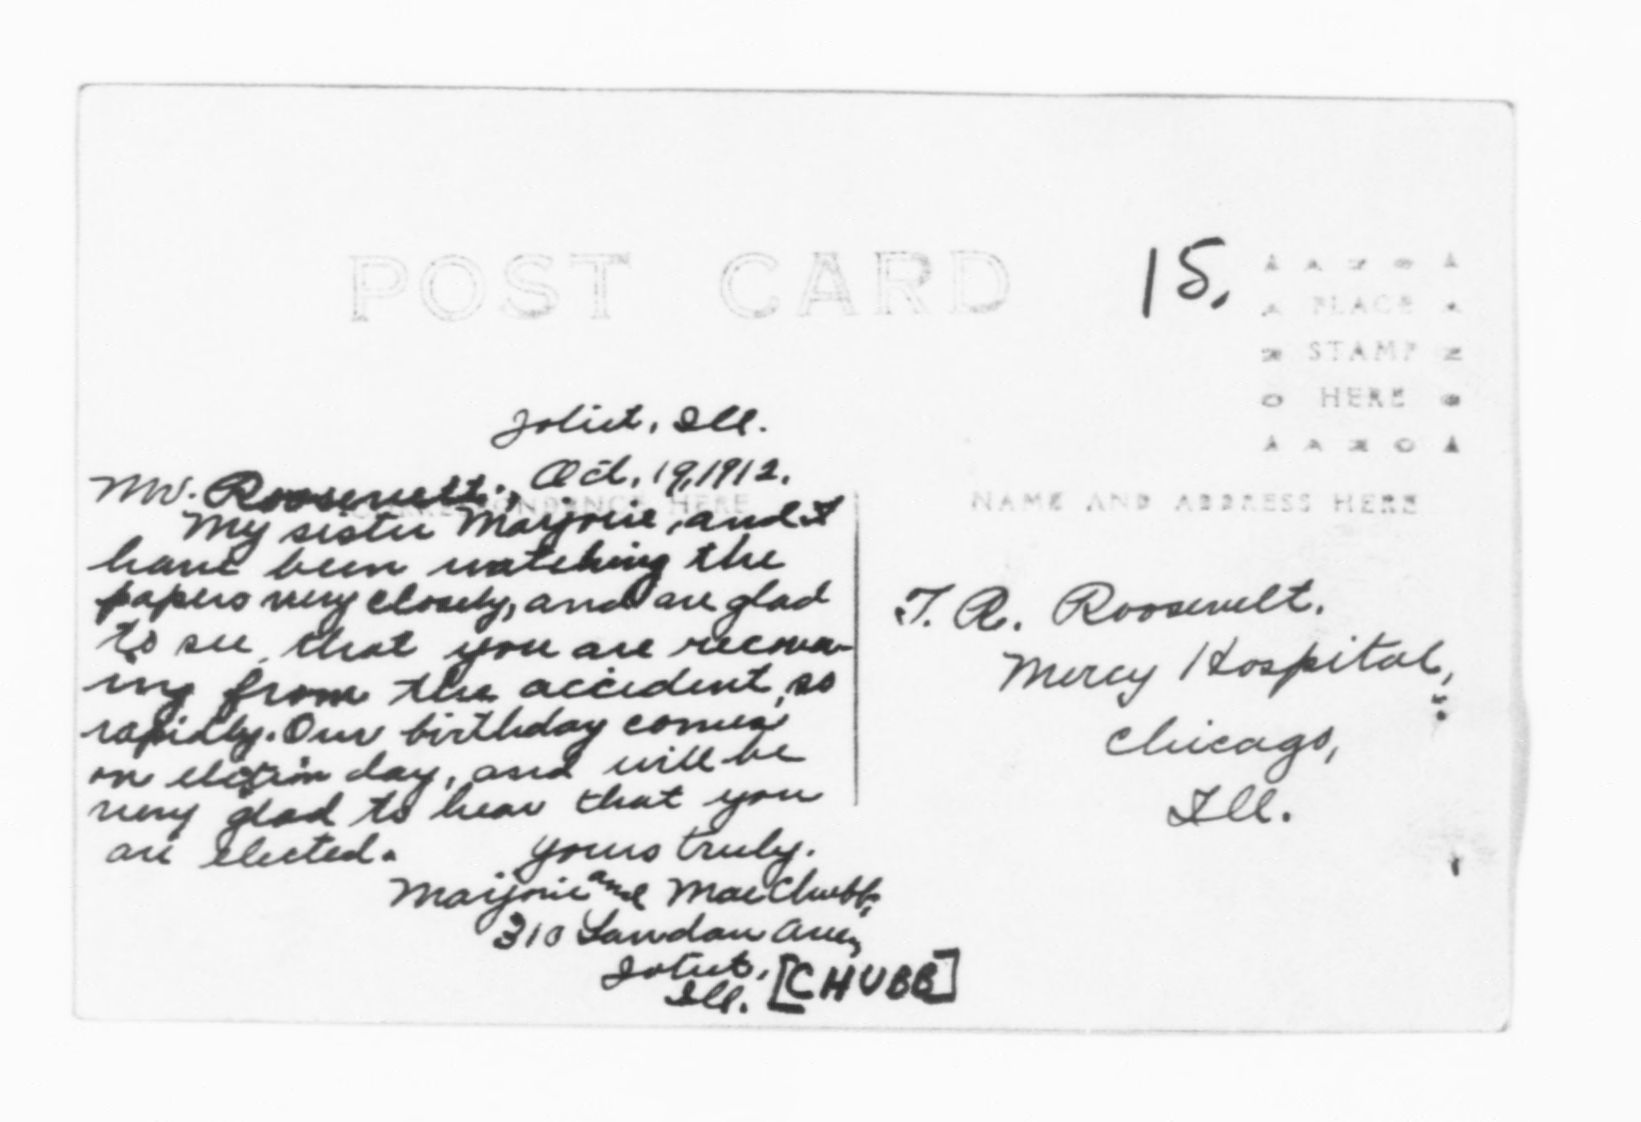 POST CARD
15.
PLACE
STAMP
HERE
Joliet, Ill.
Oct. 19, 1912.
Mr. Roosevelt.,
CORRESPONDENCE HERE
NAME AND ADDRESS HERE
My sister Marjorie, and I
have been watching the
papers very closely, and are glad
to see, that you are recover-
ing from the accident, so
rapidly. Our birthday comes
on election day, and will be
very glad to hear that you
are elected.
Yours truly.
Marjorie and Mae Chubb,
310 Landau Ave,
Joliet,
Ill. [CHUBB]
T. R. Roosevelt.
Mercy Hospital,
Chicago,
Ill.